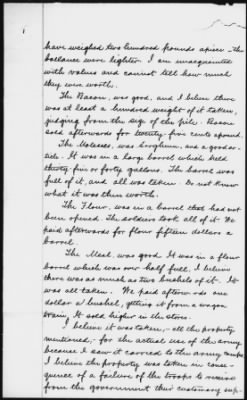 have weighed two hundred pounds apiece - the
ballance were lighter. I am unacquainted
with values and cannot tell how much
they were worth.
The Bacon, was good, and I believe there
was at least a hundred weight of it taken,
judging from the size of the pile. Bacon
sold afterwards for twenty-five cents apound.
The Molasses, was sorghum, and a good ar-
ticle. It was in a large barrel which held
thirty five or forty gallons. The barrel was
full of it, and all was taken. Do not know
what it was then worth.
The Flour, was in a barrel that had not
been opened. The soldiers took all of it. We
paid afterwards for flour fifteen dollars a
barrel.
The Meal, was good. It was in a flour
barrel which was over half full. I believe
there was as much as two bushels of it. It
was all taken. We paid afterwards one
dollar a bushel, getting it from a wagon
train. It sold higher in the stores.
I believe it was taken, - all the property
mentioned, - for the actual use of the army
because I saw it carried to the army camps
I believe the property was taken in conse-
quence of a failure of the troops to receive
from the government their customary sup-